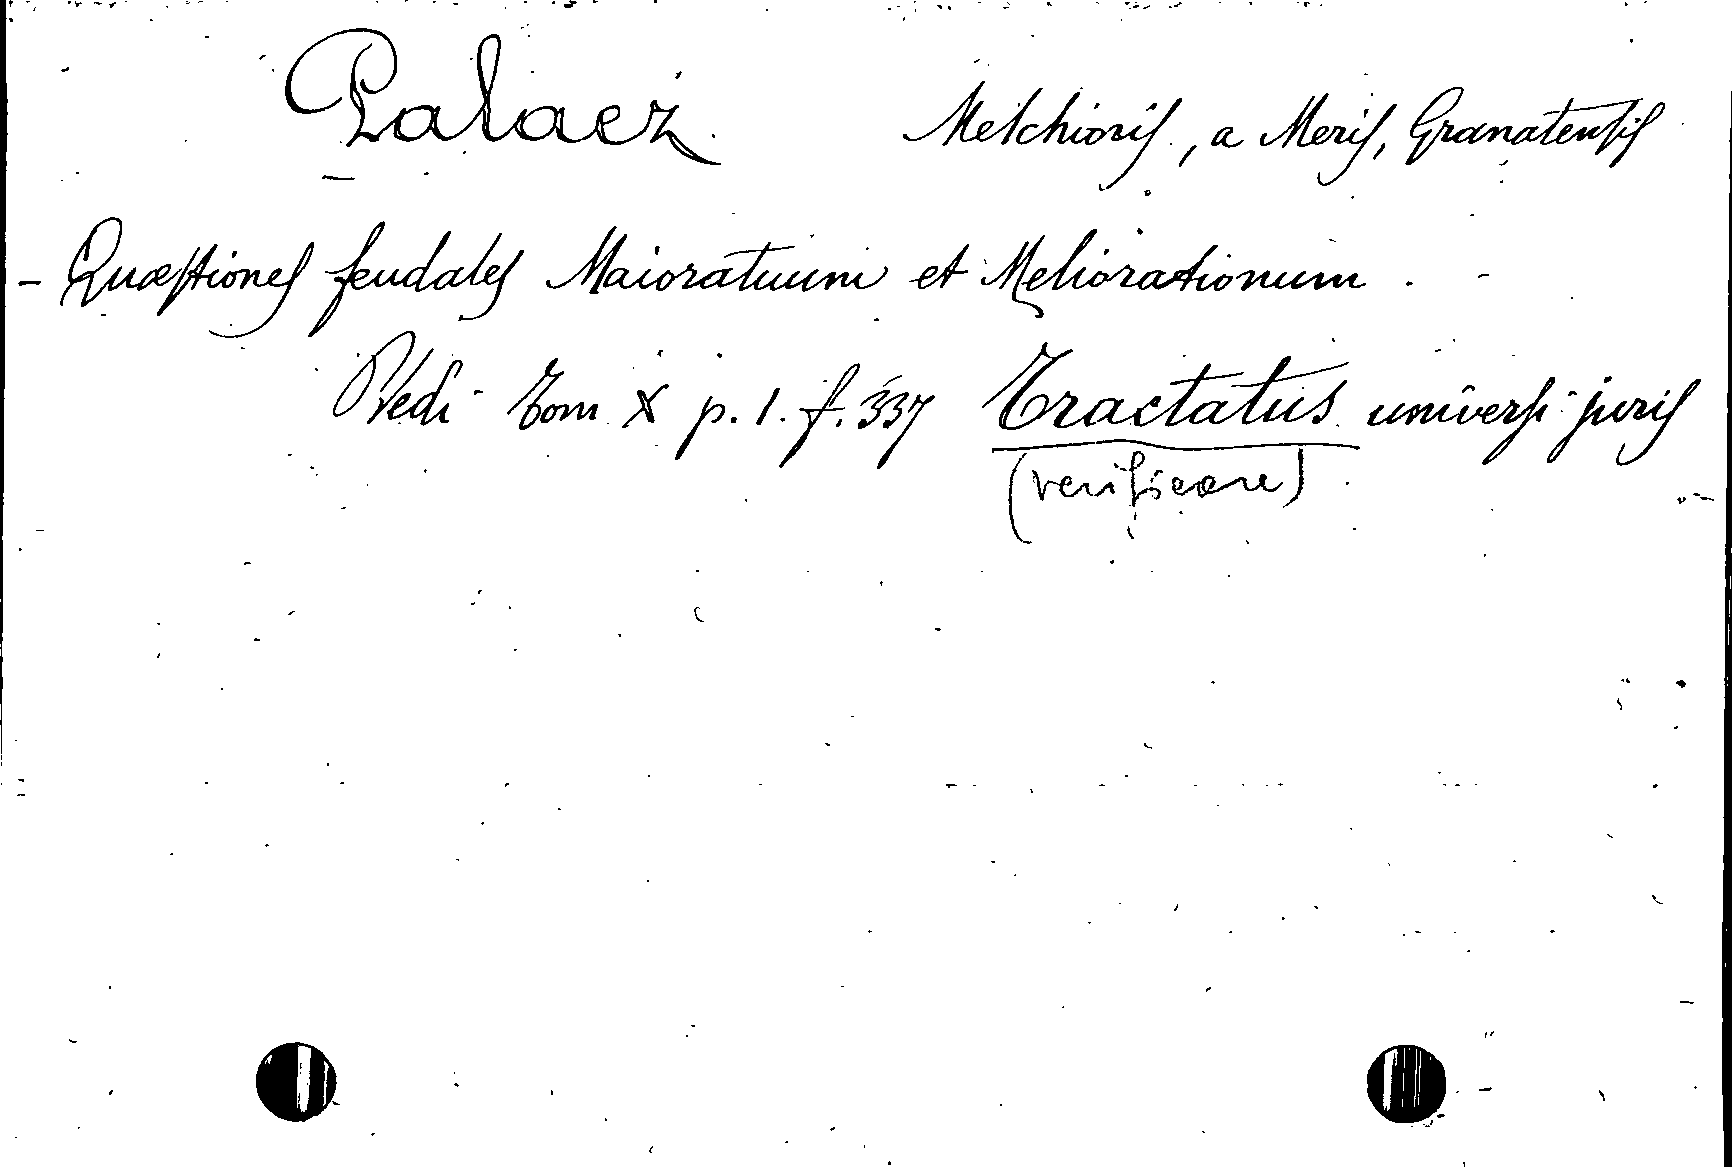 Palaez Melchioris, a Meris, Granatensis
- Quæstiones feudales Maioratuum et Meliorationum.
Vedi Tom X p. 1. f. 337 Tractatus universi juris
(verificare)